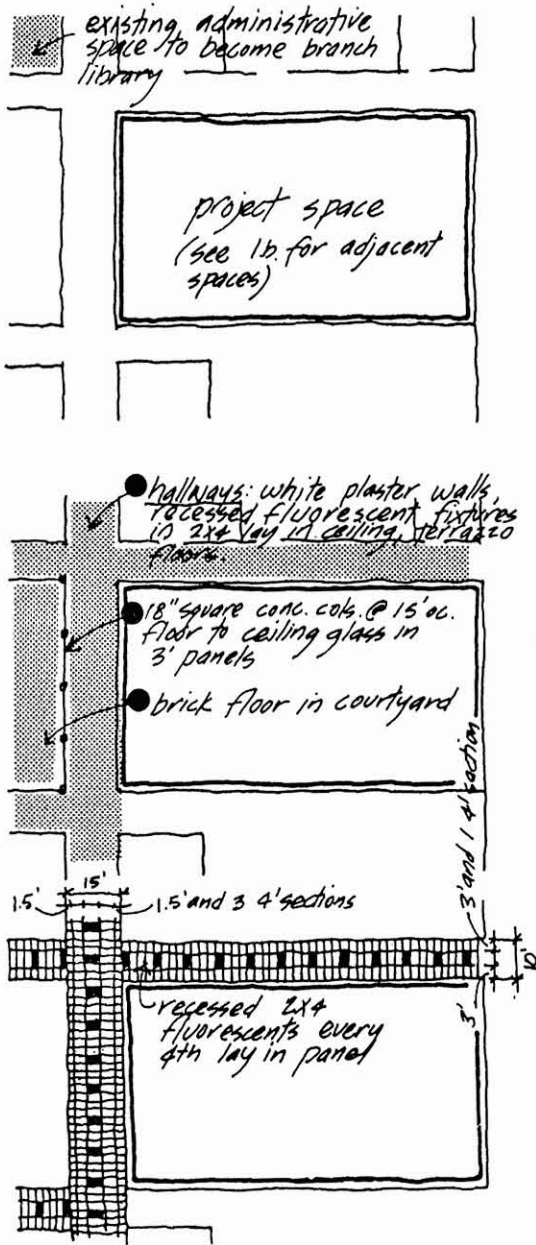 existing administrative
space to become branch
library
project space
(see 1b. for adjacent
spaces)
hallways: white plaster walls,
recessed fluorescent fixtures
in 2x4 lay in ceiling, terrazzo
floors.
18" square conc. cols. @ 15' oc.
floor to ceiling glass in
3' panels
brick floor in courtyard
3' and 1 4' section
15'
1.5'
1.5' and 3 4' sections
10'
3'
recessed 2x4
fluorescents every
4th lay in panel